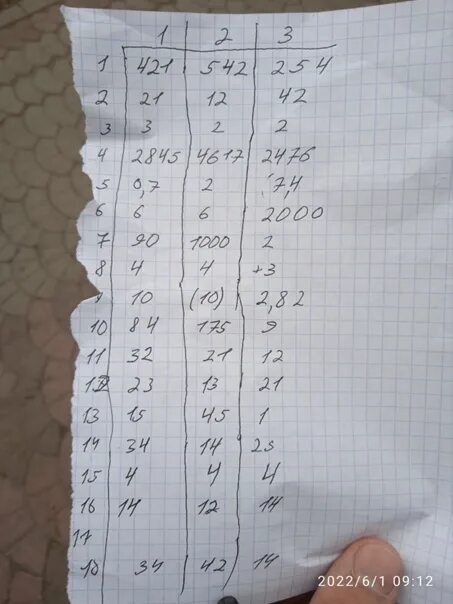 1 2 3
1 421 542 254
2 21 12 42
3 3 2 2
4 2845 4617 2476
5 0,7 2 7,4
6 6 6 2000
7 90 1000 2
8 4 4 +3
10 (10) 2,82
10 84 175 9
11 32 21 12
12 23 13 21
13 15 45 1
14 34 14 25
15 4 4 4
16 14 12 14
17
18 34 42 14
2022/6/1 09:12